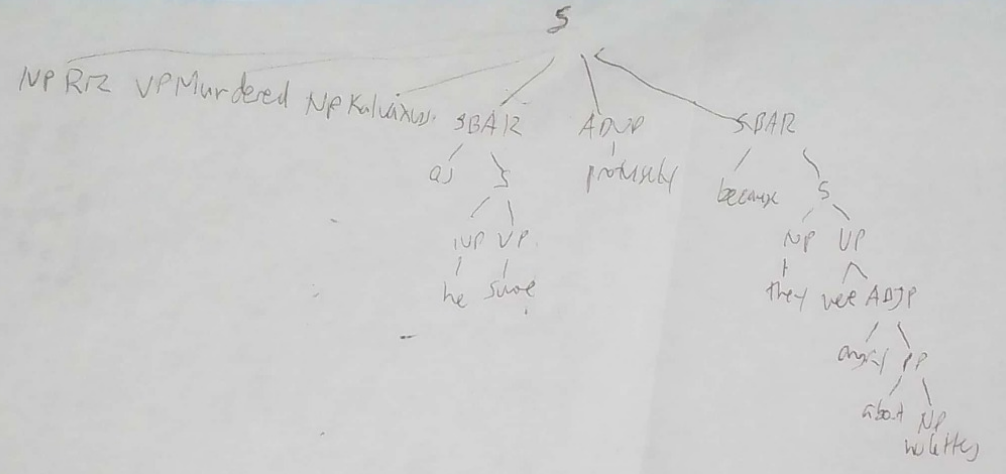 S
NP Riz VP Murdered NP Kalvaxus. SBAR ADVP SBAR
as S profusely because S
NP VP NP VP
he swore they were ADJP
angry PP
about NP